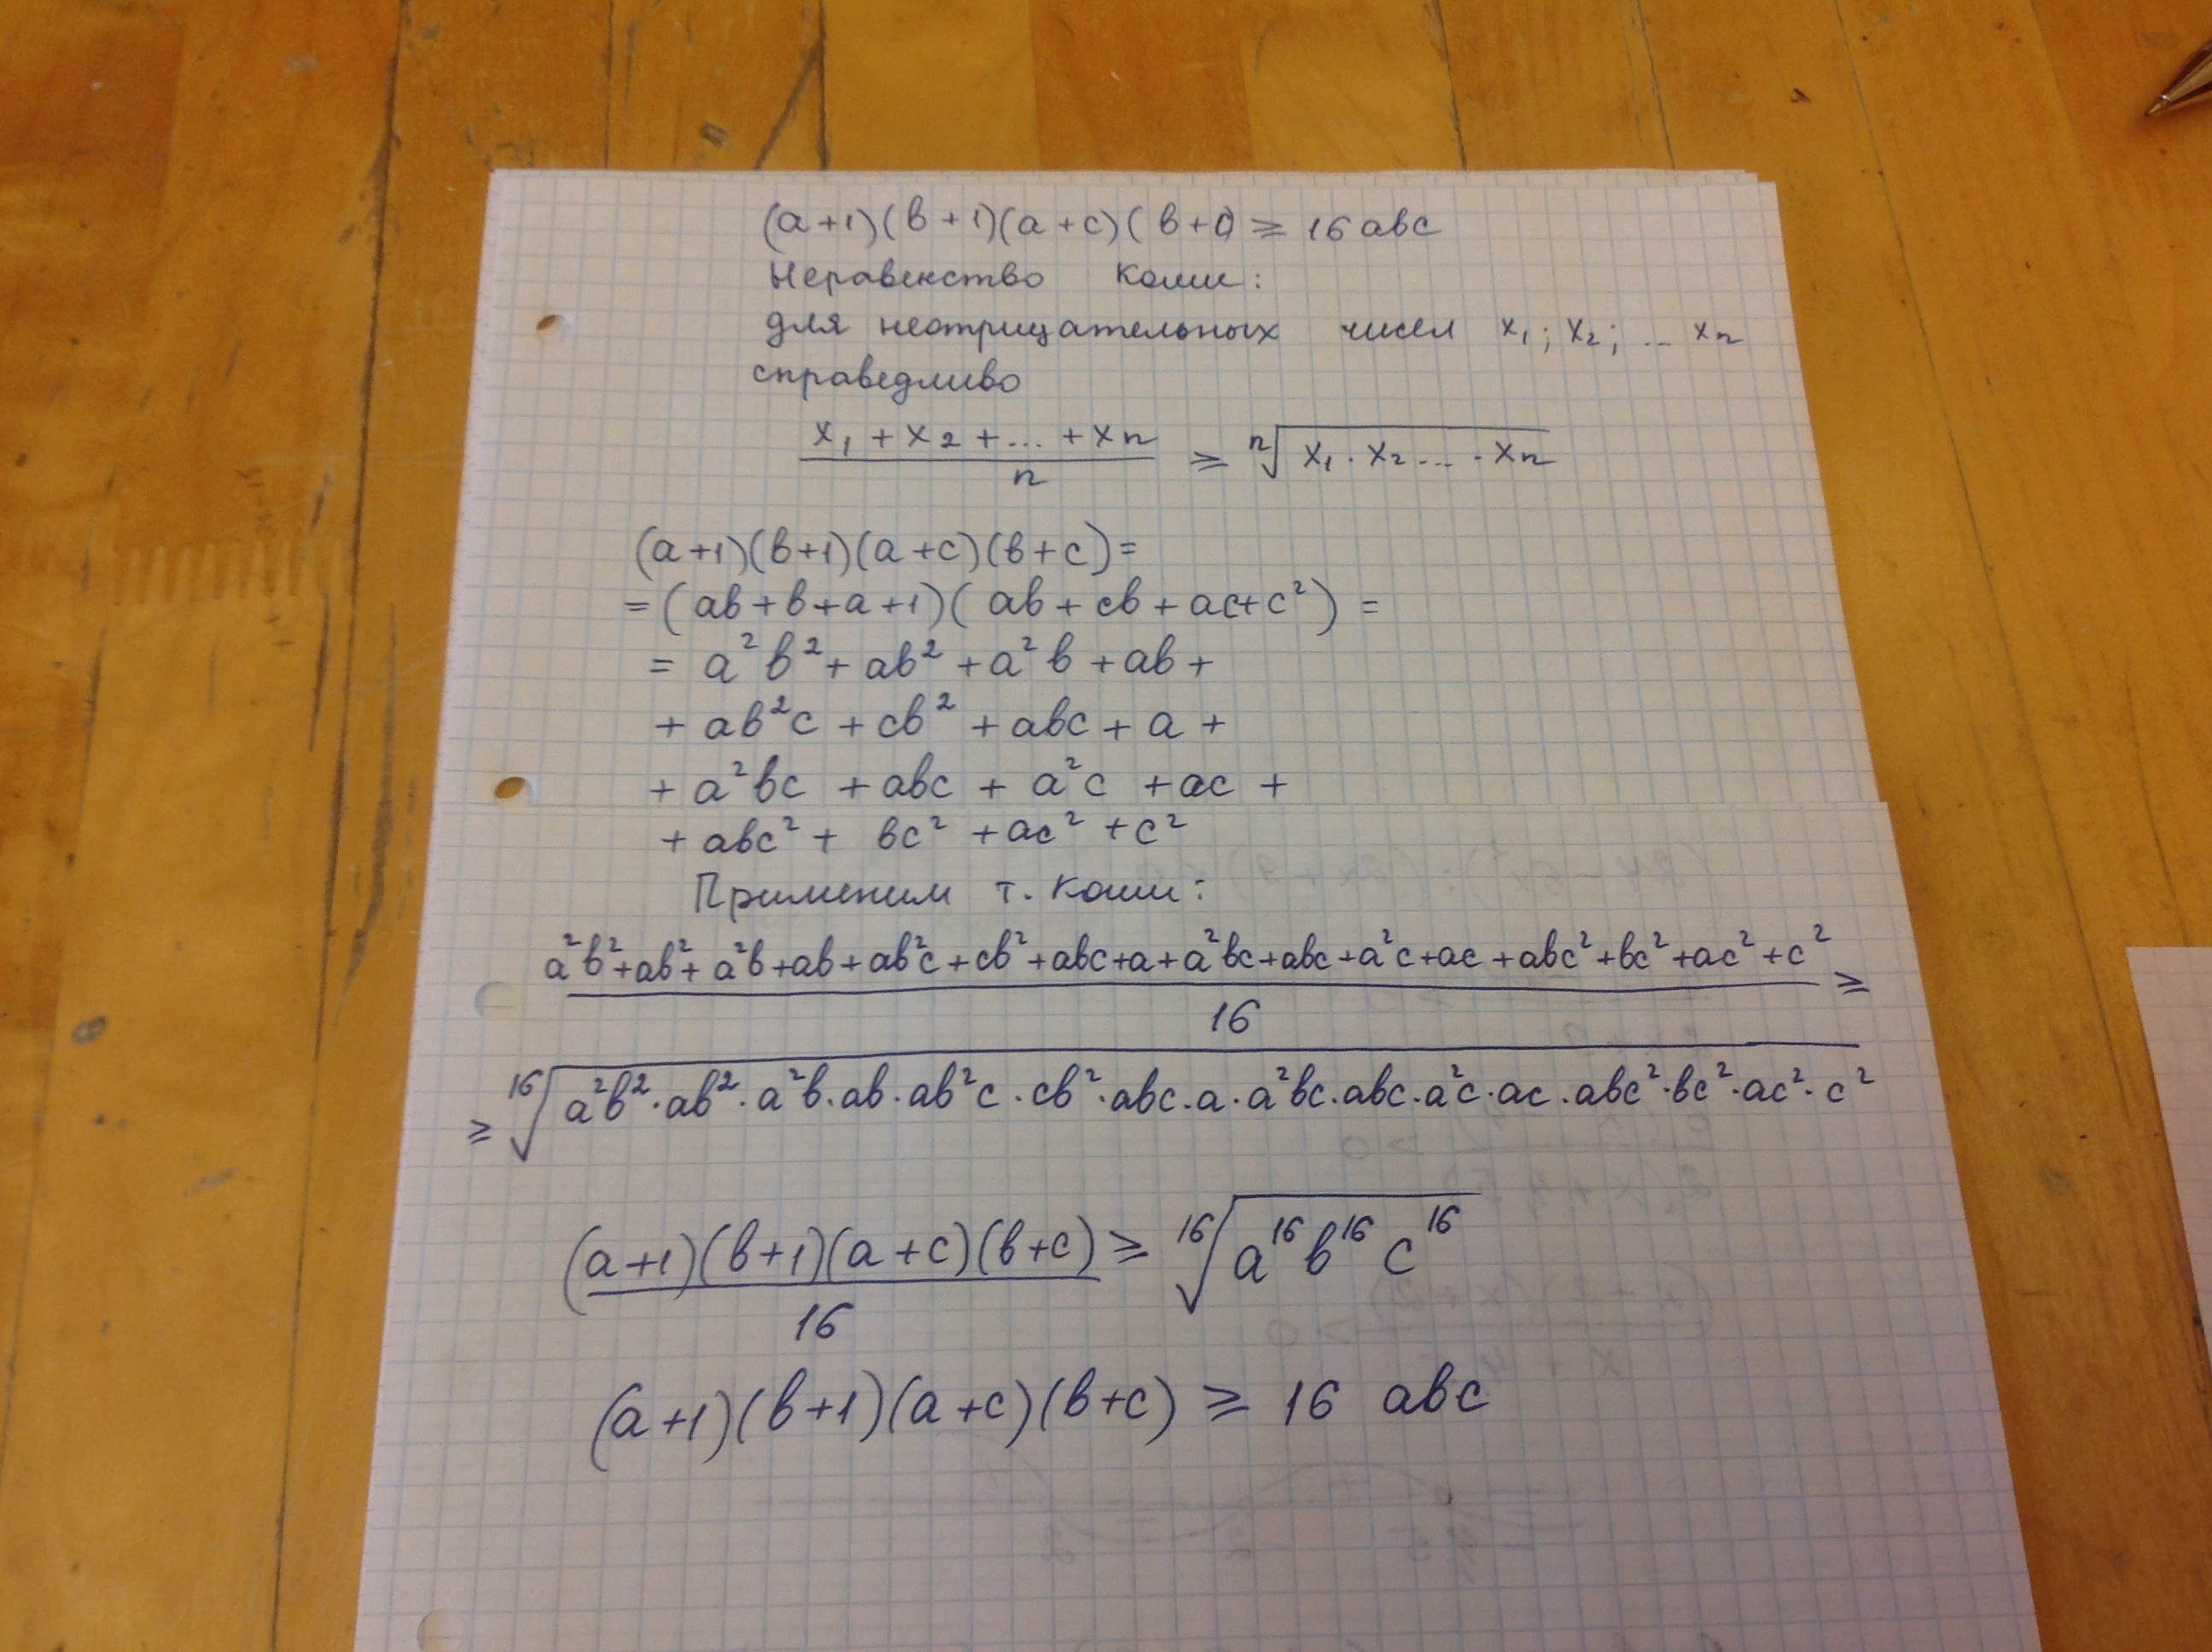 (a+1)(b+1)(a+c)(b+c) ⩾ 16abc
Неравенство Коши:
для неотрицательных чисел x₁; x₂; ... xₙ
справедливо
(x₁ + x₂ + ... + xₙ)/n ⩾ ⁿ√(x₁ · x₂ ... · xₙ)
(a+1)(b+1)(a+c)(b+c)=
=(ab+b+a+1)(ab+cb+ac+c²) =
= a²b² + ab² + a²b + ab +
+ ab²c + cb² + abc + a +
+ a²bc + abc + a²c + ac +
+ abc² + bc² + ac² + c²
Применим т. Коши:
(a²b²+ab²+a²b+ab+ab²c+cb²+abc+a+a²bc+abc+a²c+ac+abc²+bc²+ac²+c²)/16 ⩾
⩾ ¹⁶√(a²b²·ab²·a²b·ab·ab²c·cb²·abc·a·a²bc·abc·a²c·ac·abc²·bc²·ac²·c²)
(a+1)(b+1)(a+c)(b+c)/16 ⩾ ¹⁶√(a¹⁶b¹⁶c¹⁶)
(a+1)(b+1)(a+c)(b+c) ⩾ 16 abc